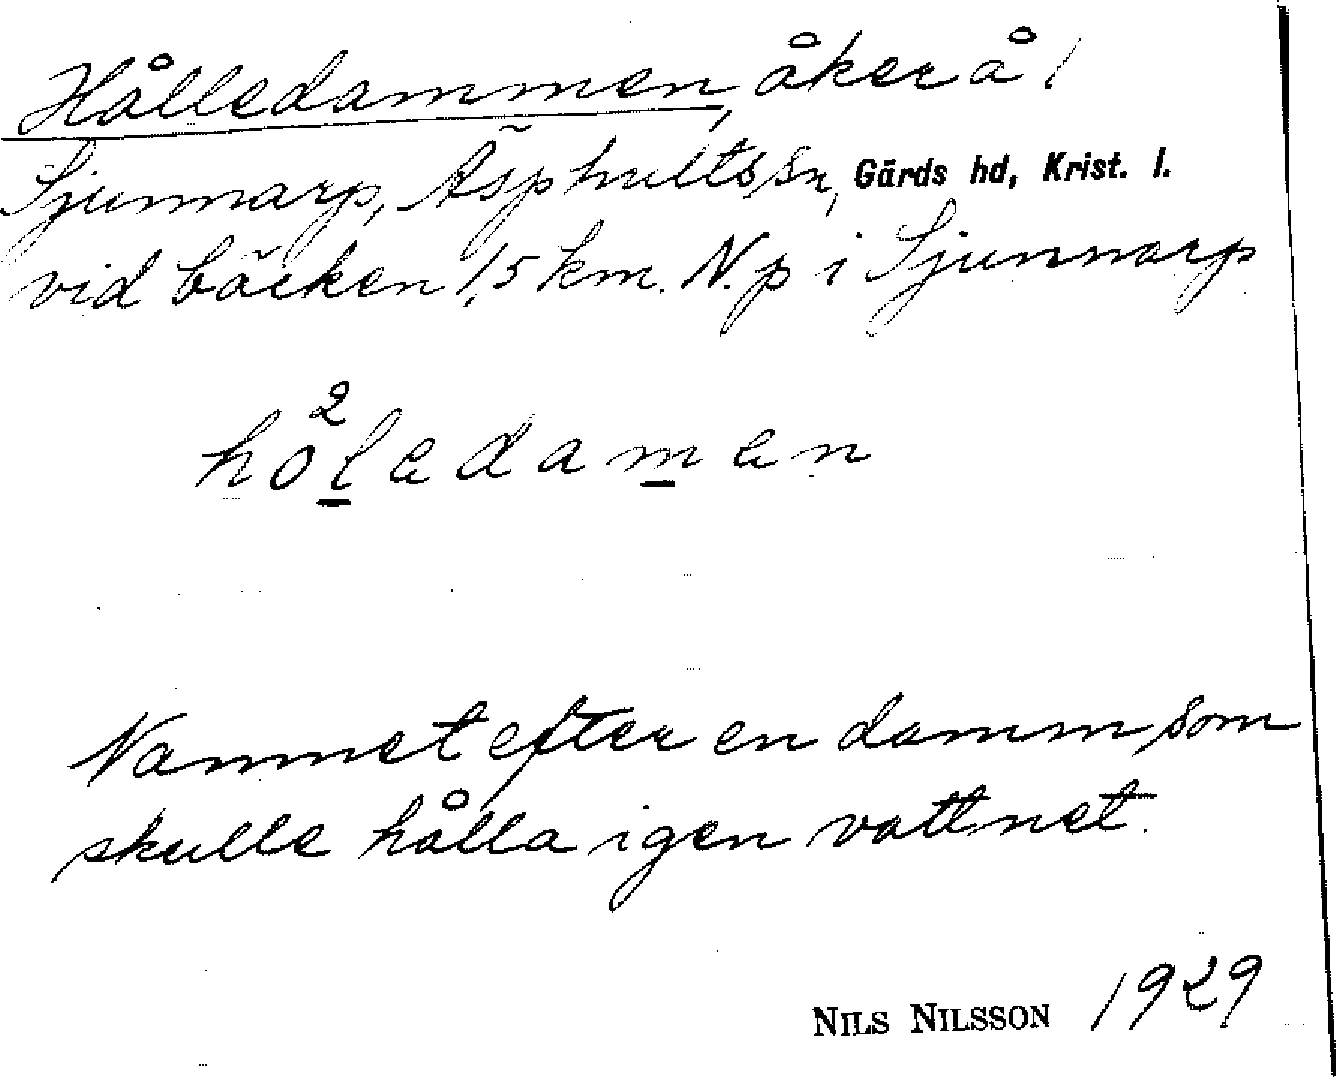 Hålledammen, åker å 1
Sjunnarp, Äsphults sn, Gärds hd, Krist. l.
vid bäcken 1,5 km. N. p i Sjunnarp
ho²ledamen
Namnet efter en damm som
skulle hålla igen vattnet.
NILS NILSSON 1929